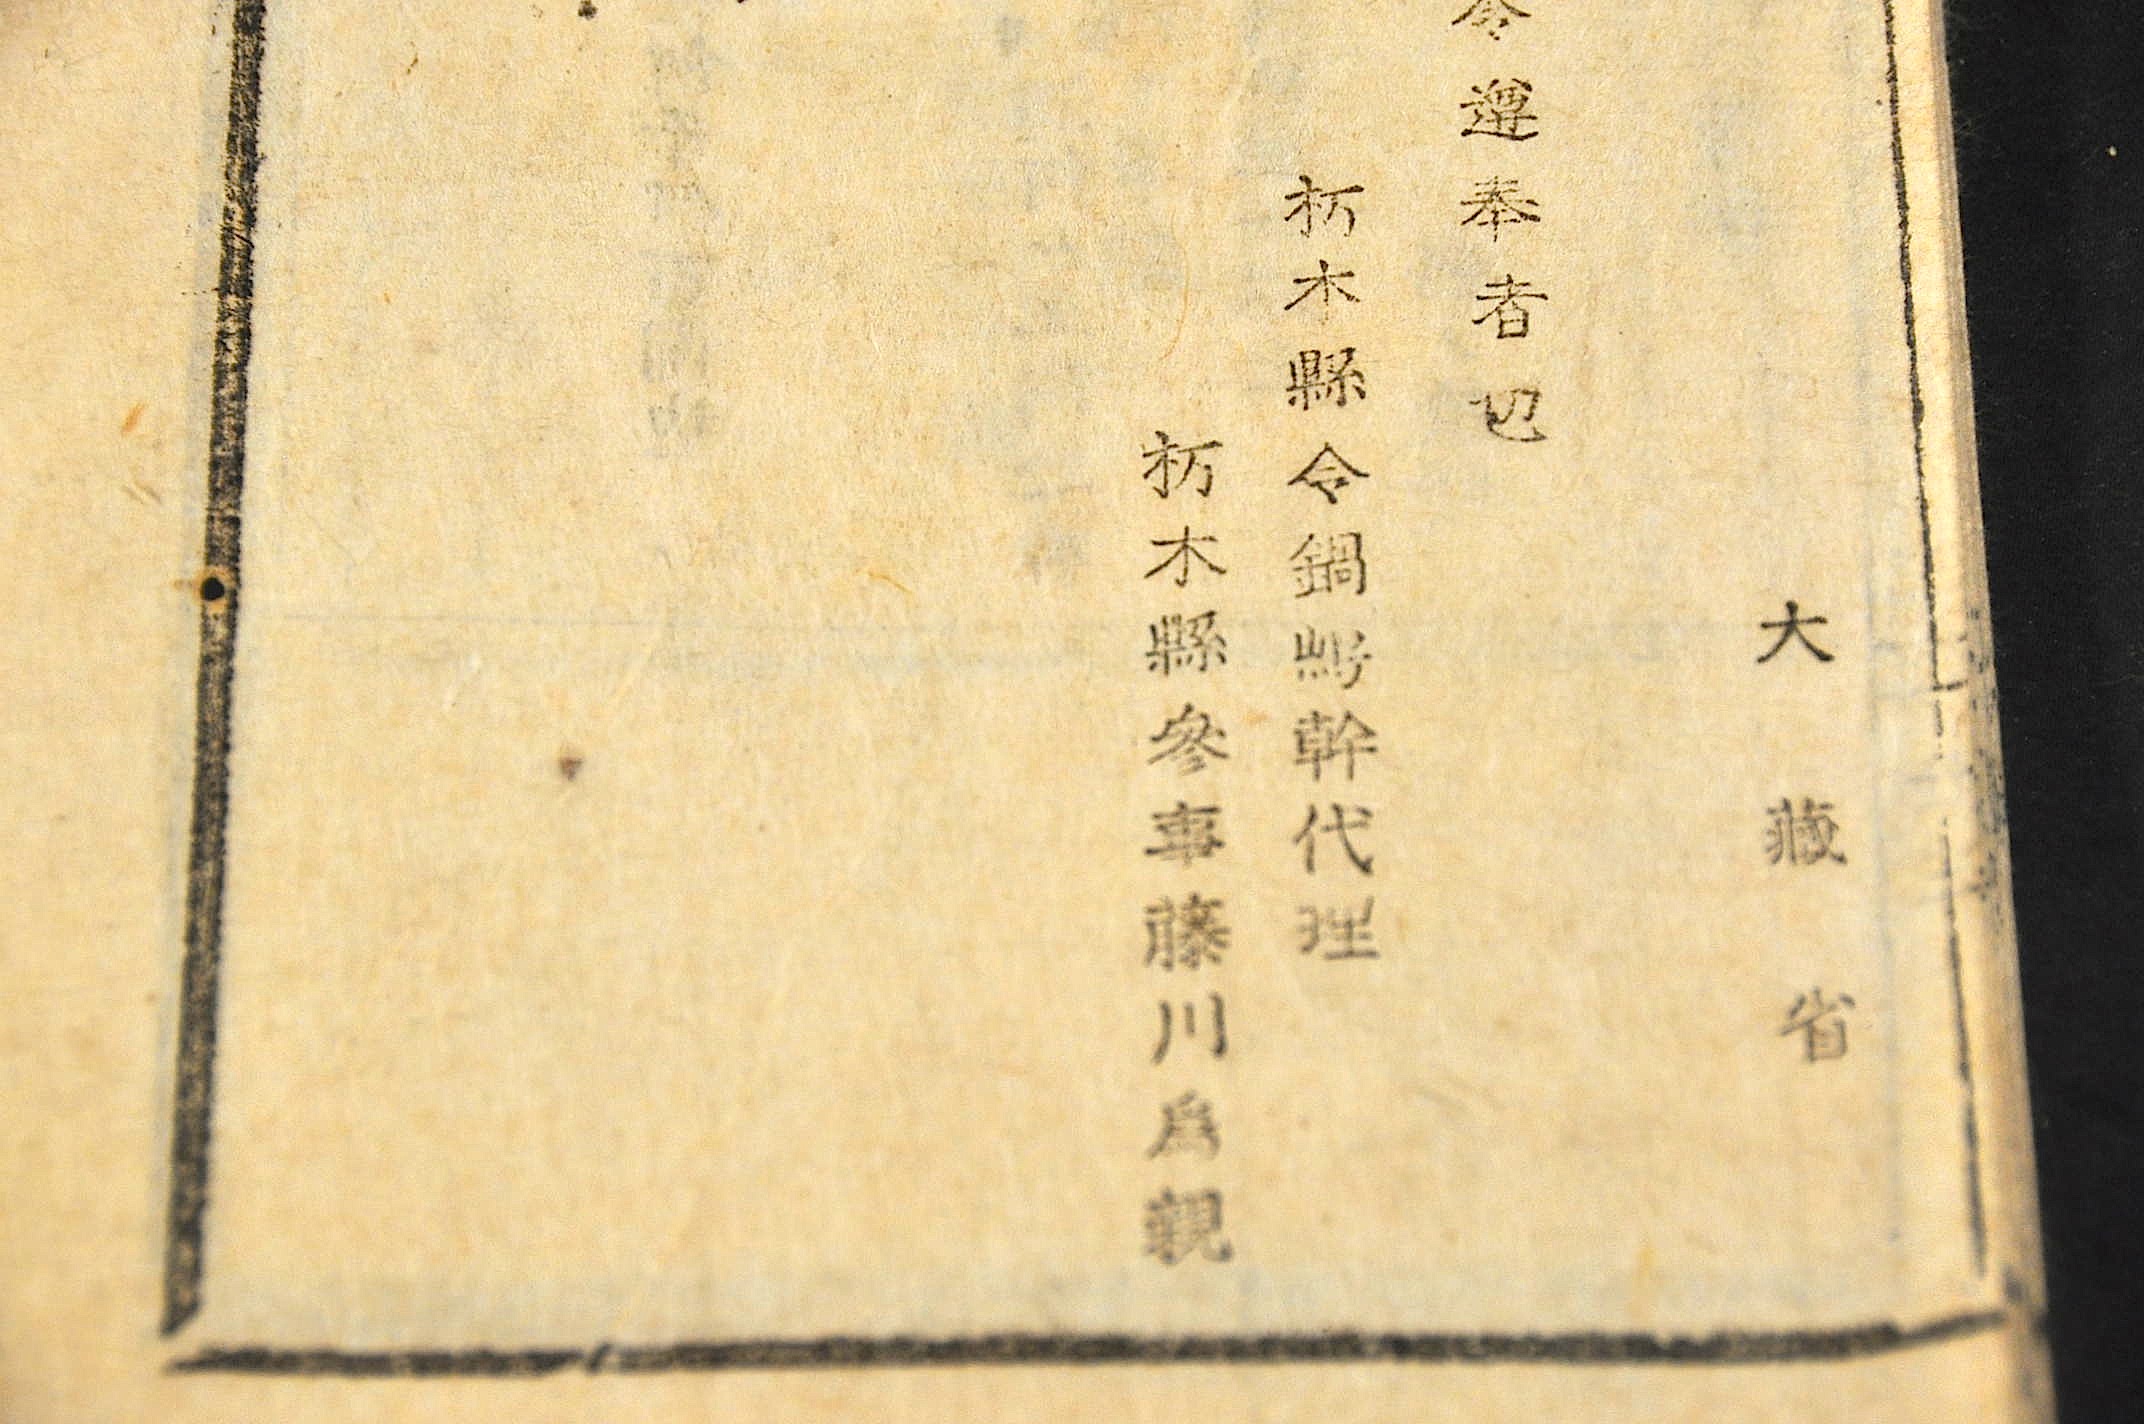 大藏省
令遵奉者也
栃木縣令鍋嶋幹代理
栃木縣參事藤川爲親